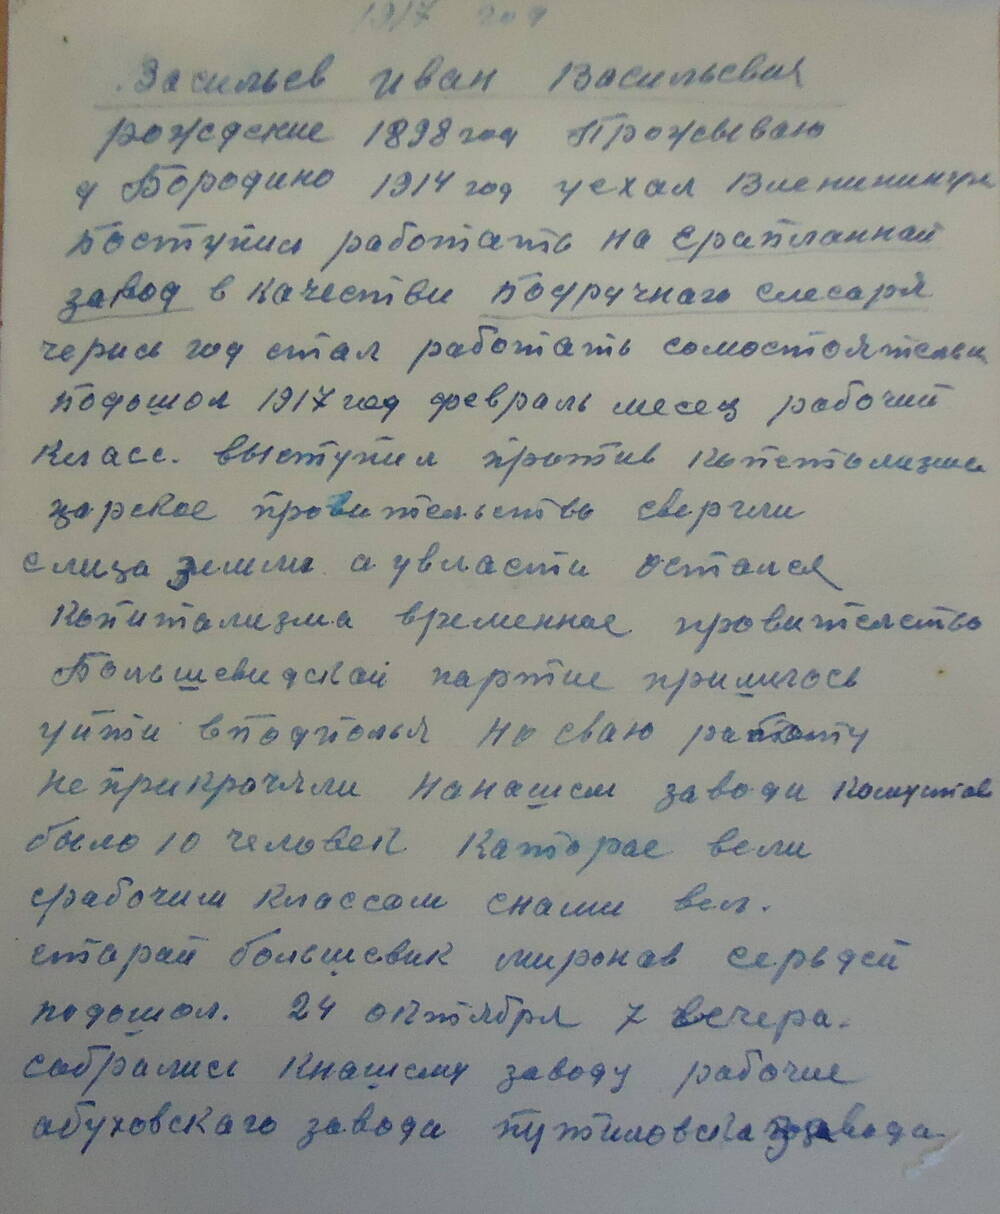 1917 год
Васильев Иван Васильевия
рождение 1898 год Проживаю
д Бородино 1914 год уехал Вленининград
Поступил работать на ераплannай
завод в качестви подручного слесаря
черись год стал работать сомостоятельн
подошол 1917 год февраль месец рабочий
класс. выступил против копетолизма
царское провительство свергли
слица земли а увласти остался
копитализма временное провителство
Большевидской партие пришлось
уйти вподполья но сваю работу
не прикрочяли нанашем заводи комустов
было 10 человек каторае вели
срабочим классом снами вел.
старай большевик миронов сергей
подошол. 24 октября 7 вечера.
собрались кнашему заводу рабочие
абуховского завода путиловска завода